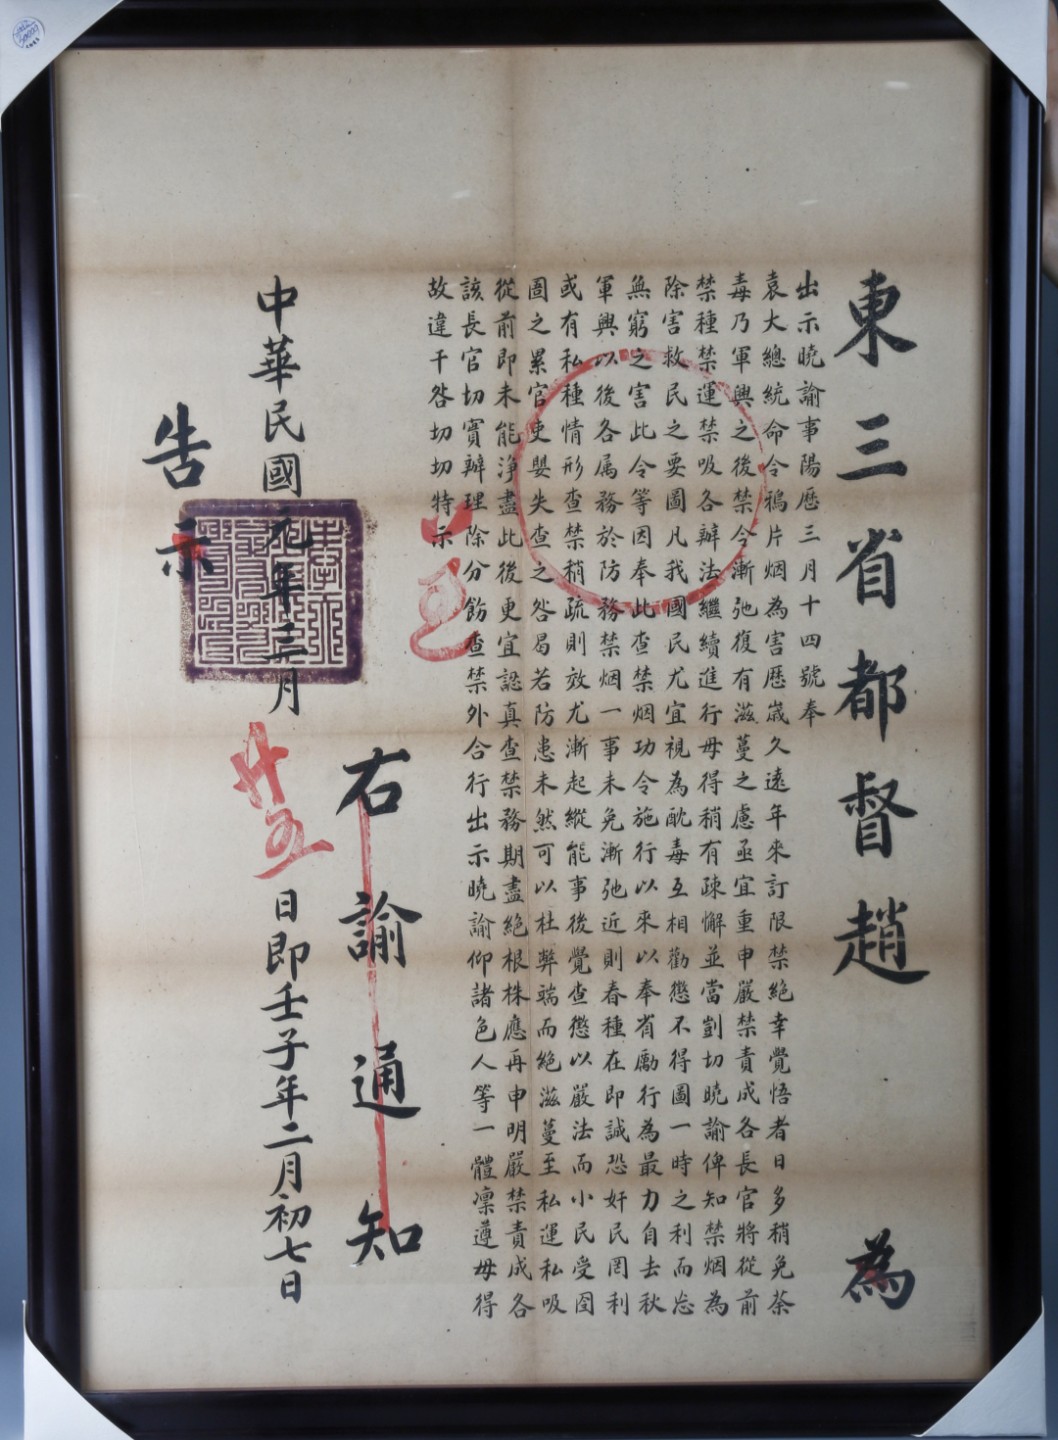 東三省都督趙 為
出示曉諭事陽歷三月十四號奉
袁大總統命令鴉片烟為害歷歲久遠年來訂限禁絕幸覺悟者日多稍免荼
毒乃軍興之後禁令漸弛復有滋蔓之慮亟宜重申嚴禁責成各長官將從前
禁種禁運禁吸各辦法繼續進行毋得稍有疎懈並當剴切曉諭俾知禁烟為
除害救民之要圖凡我國民尤宜視為酖毒互相勸懲不得圖一時之利而忘
無窮之害此令等因奉此查禁烟功令施行以來以奉省勵行為最力自去秋
軍興以後各属務於防務禁烟一事未免漸弛近則春種在即誠恐奸民罔利
或有私種情形查禁稍疏則效尤漸起縱能事後覺查懲以嚴法而小民受囹
圄之累官吏嬰失查之咎曷若防患未然可以杜弊端而絕滋蔓至私運私吸
從前即未能淨盡此後更宜認真查禁務期盡絕根株應再申明嚴禁責成各
該長官切實辦理除分飭查禁外合行出示曉諭仰諸色人等一體凛遵毋得
故違干咎切切特示
右諭通知
中華民國元年三月廿五日即壬子年二月初七日
告示